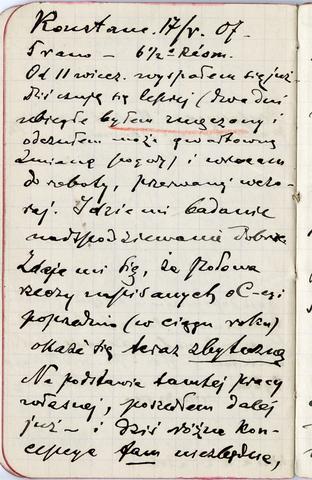 Konstanc. 17/V. 07.
5 rano – 6½ª Réom.
Od 11 wiecz. wyspałem się, już
dziś czuję się lepiej (dwa dni
ubiegłe byłem zmęczony i
odczułem może gwałtowną
zmianę pogody) i wracam
do roboty, przerwanej wczo-
raj. Idzie mi badanie
nadspodziewanie dobrze.
Zdaje mi się, że połowa
rzeczy napisanych o C-
poprzednio (w ciągu roku)
okaże się teraz zbyteczną
Na podstawie tamtej pracy
własnej, poszedłem dalej
już – i dziś różne kon-
cepcye tam niezbędne,